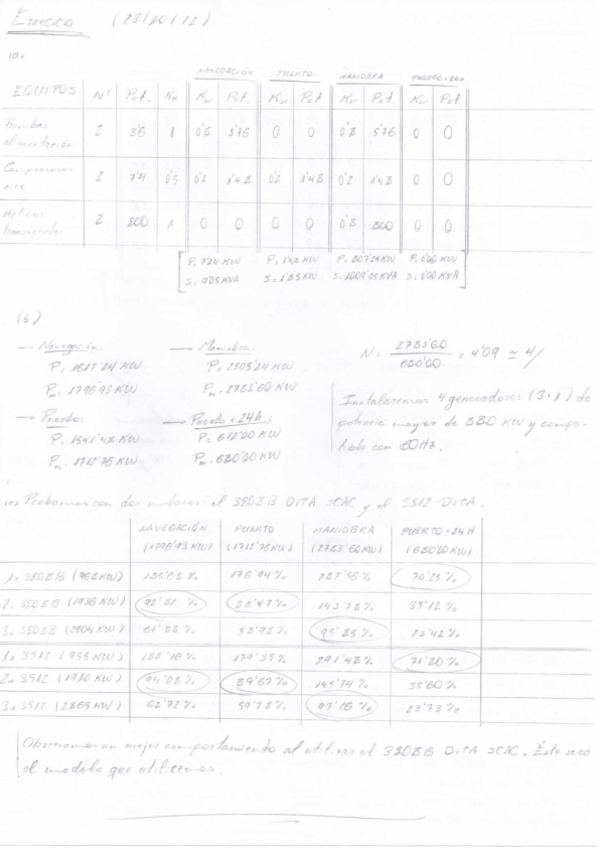 EJERCICIO (23/10/12)
(a)
NAVEGACIÓN PUERTO MANIOBRA PUERTO+24H
EQUIPOS Nº Pot. Kn Ksr Pot. Ksr Pot. Ksr Pot. Ksr Pot.
Bombas alimentación 2 3'6 1 0'8 5'76 0 0 0'8 5'76 0 0
Compresores aire 2 7'4 0'5 0'2 1'48 0'2 1'48 0'2 1'48 0 0
Hélices transversales 2 500 1 0 0 0 0 0'8 800 0 0
P: 7'24 KW P: 1'48 KW P: 807'24 KW P: 0'00 KW
S: 9'05 KVA S: 1'85 KW S: 1009'05 KVA S: 0'00 KVA
(b)
→ Navegación:
P: 1617'24 KW
Pm: 1796'93 KW
→ Maniobra:
P: 2505'24 KW
Pm: 2783'60 KW
N: 2783'60 / 680'00 = 4'09 ≃ 4/
→ Puerto:
P: 1541'48 KW
Pm: 1712'76 KW
→ Puerto+24h:
P: 612'00 KW
Pm: 680'00 KW
Instalaremos 4 generadores (3+1) de
potencia mayor de 680 KW y compa-
tible con 60Hz.
(c) Probamos con dos motores: el 3508B DITA SCAC y el 3512 DITA.
NAVEGACIÓN PUERTO MANIOBRA PUERTO+24H
(1796'93 KW) (1712'76 KW) (2783'60 KW) (680'00 KW)
1x 3508B (968 KW) 185'63 % 176'94 % 287'56 % 70'25 %
2x 3508B (1936 KW) 92'82 % 88'47 % 143'78 % 35'12 %
3x 3508B (2904 KW) 61'88 % 58'98 % 95'85 % 23'42 %
1x 3512 (955 KW) 188'16 % 179'35 % 291'48 % 71'20 %
2x 3512 (1910 KW) 94'08 % 89'67 % 145'74 % 35'60 %
3x 3512 (2865 KW) 62'72 % 59'78 % 97'16 % 23'73 %
Observamos un mejor comportamiento al utilizar el 3508B DITA SCAC. Éste será
el modelo que utilicemos.